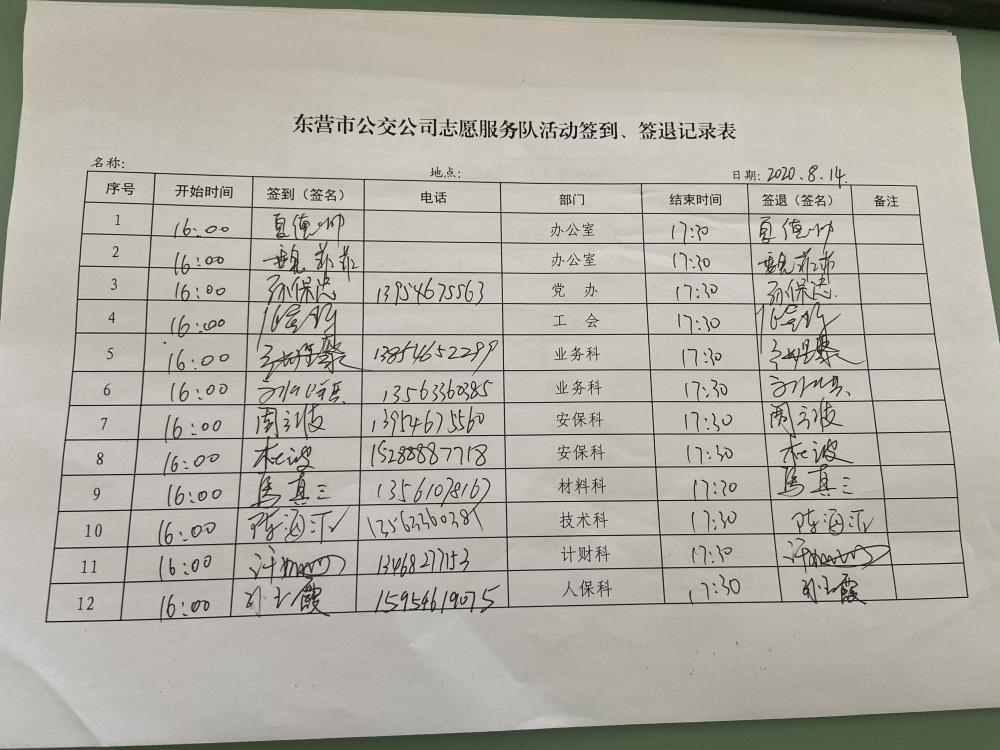 东营市公交公司志愿服务队活动签到、签退记录表
名称: 地点: 日期: 2020.8.14.
序号 开始时间 签到（签名） 电话 部门 结束时间 签退（签名） 备注
1 16:00 夏德帅 办公室 17:30 夏德帅
2 16:00 魏菲菲 办公室 17:30 魏菲菲
3 16:00 孙保忠 13954675563 党 办 17:30 孙保忠
4 16:00 工 会 17:30
5 16:00 13954652299 业务科 17:30
6 16:00 13563360385 业务科 17:30
7 16:00 周立波 13954675560 安保科 17:30 周立波
8 16:00 杜波 15288887718 安保科 17:30 杜波
9 16:00 马真三 13561078167 材料科 17:30 马真三
10 16:00 陈海 技术科 17:30 陈海
11 16:00 许 13468277153 计财科 17:30 许
12 16:00 孙玉霞 15954619075 人保科 17:30 孙玉霞